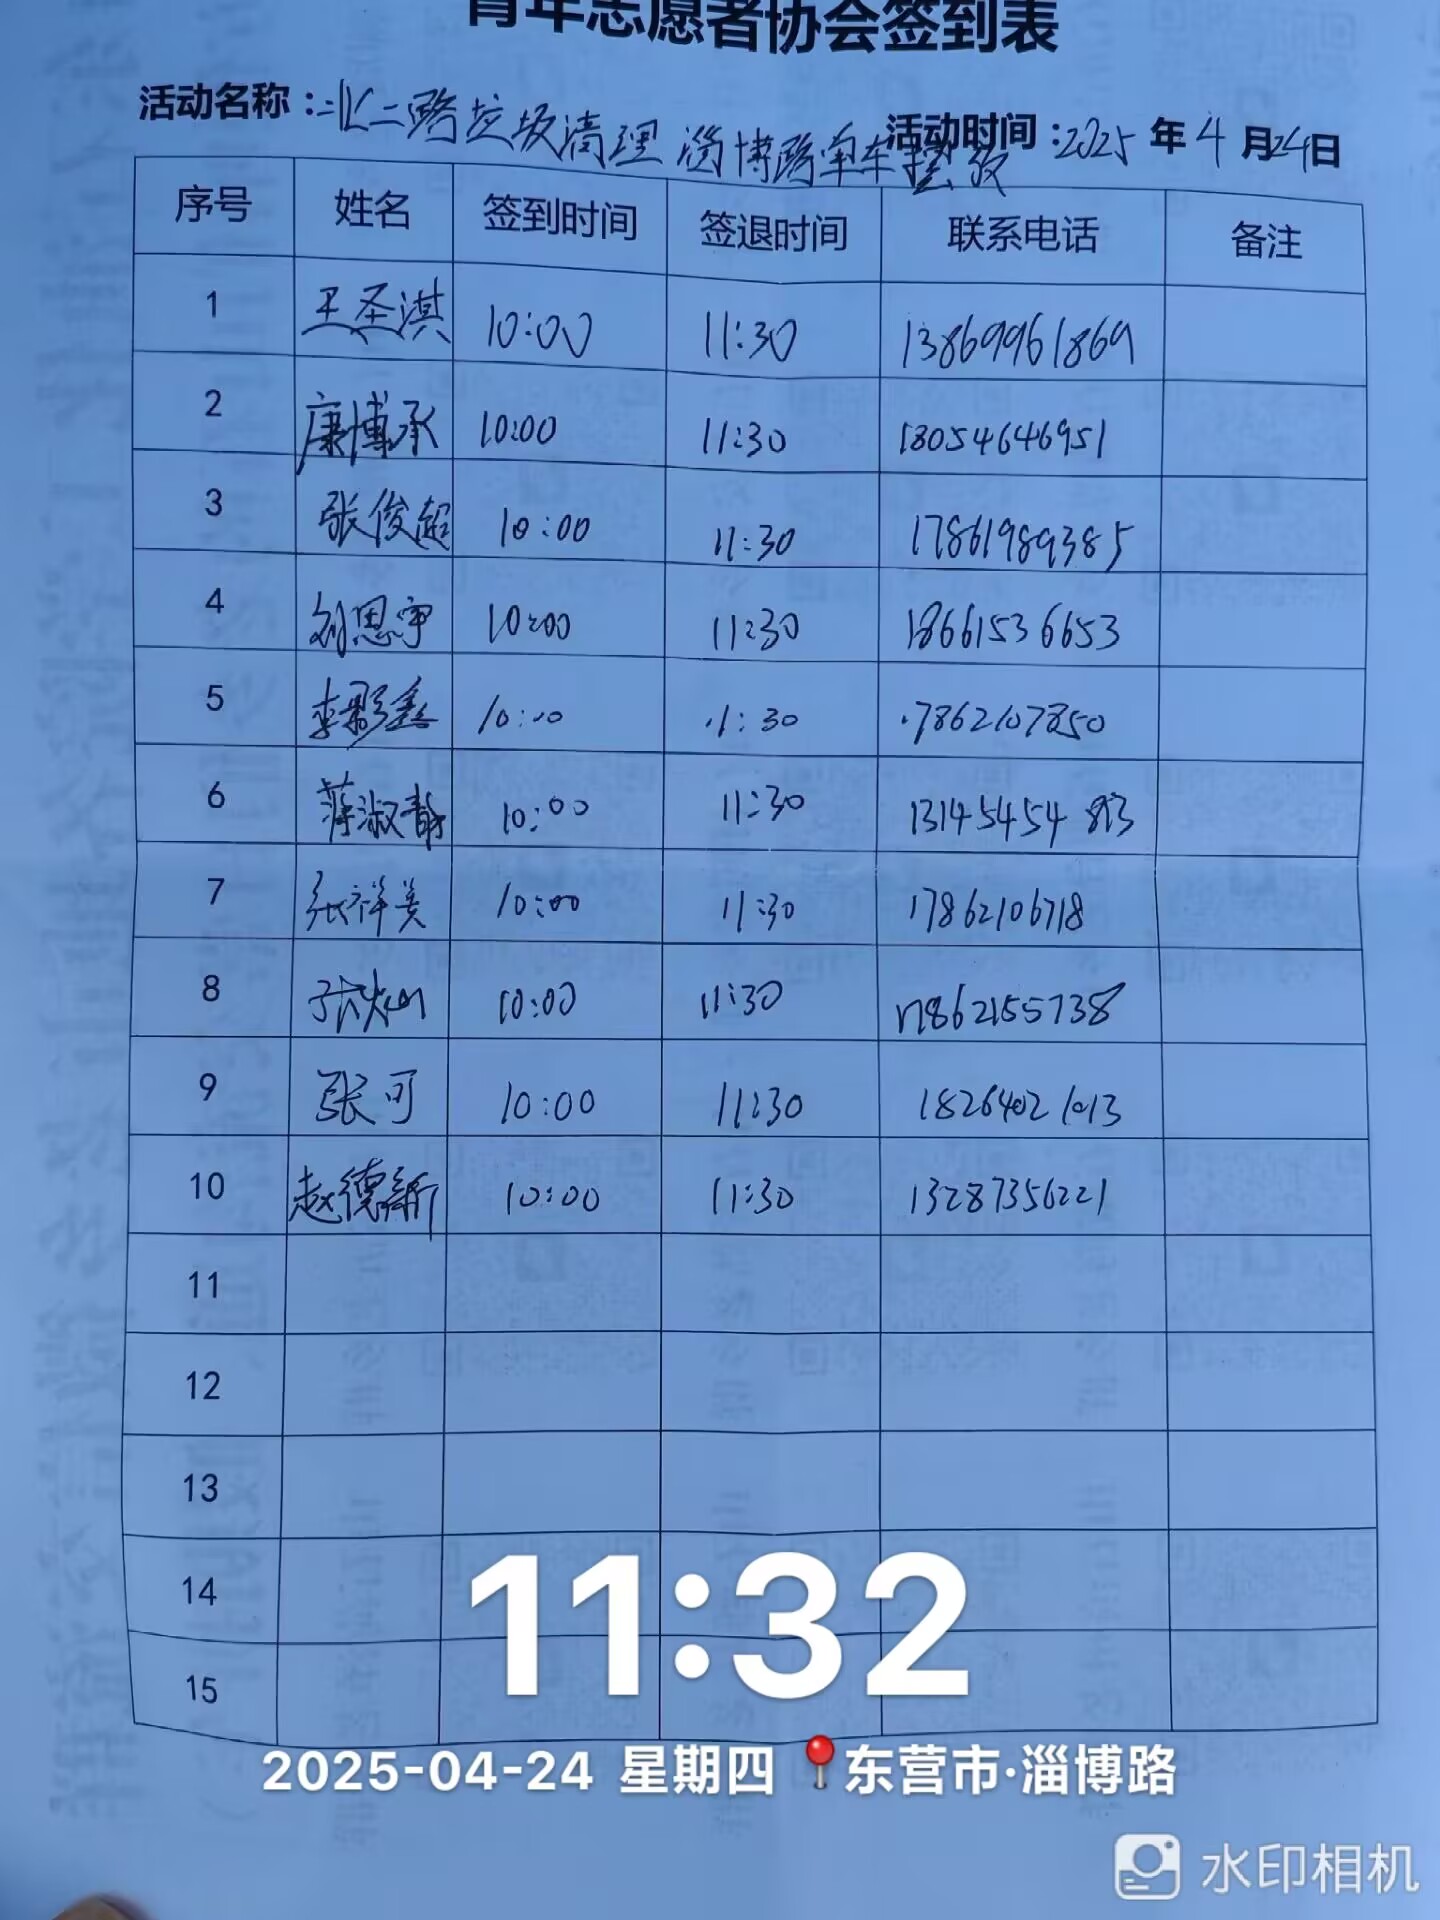 青年志愿者协会签到表
活动名称：北二路垃圾清理 淄博路单车摆放 活动时间：2025年4月24日
序号 姓名 签到时间 签退时间 联系电话 备注
1 王圣淇 10:00 11:30 13869961869
2 康博承 10:00 11:30 18054646951
3 张俊超 10:00 11:30 17861989385
4 刘思宇 10:00 11:30 18661536653
5 10:00 11:30 17862107850
6 蒋淑静 10:00 11:30
7 张祥美 10:00 11:30 17862106718
8 张灿 10:00 11:30 17862155738
9 张可 10:00 11:30 18264021013
10 赵德新 10:00 11:30 13287356221
11
12
13
14
15
11:32
2025-04-24 星期四 东营市·淄博路
水印相机